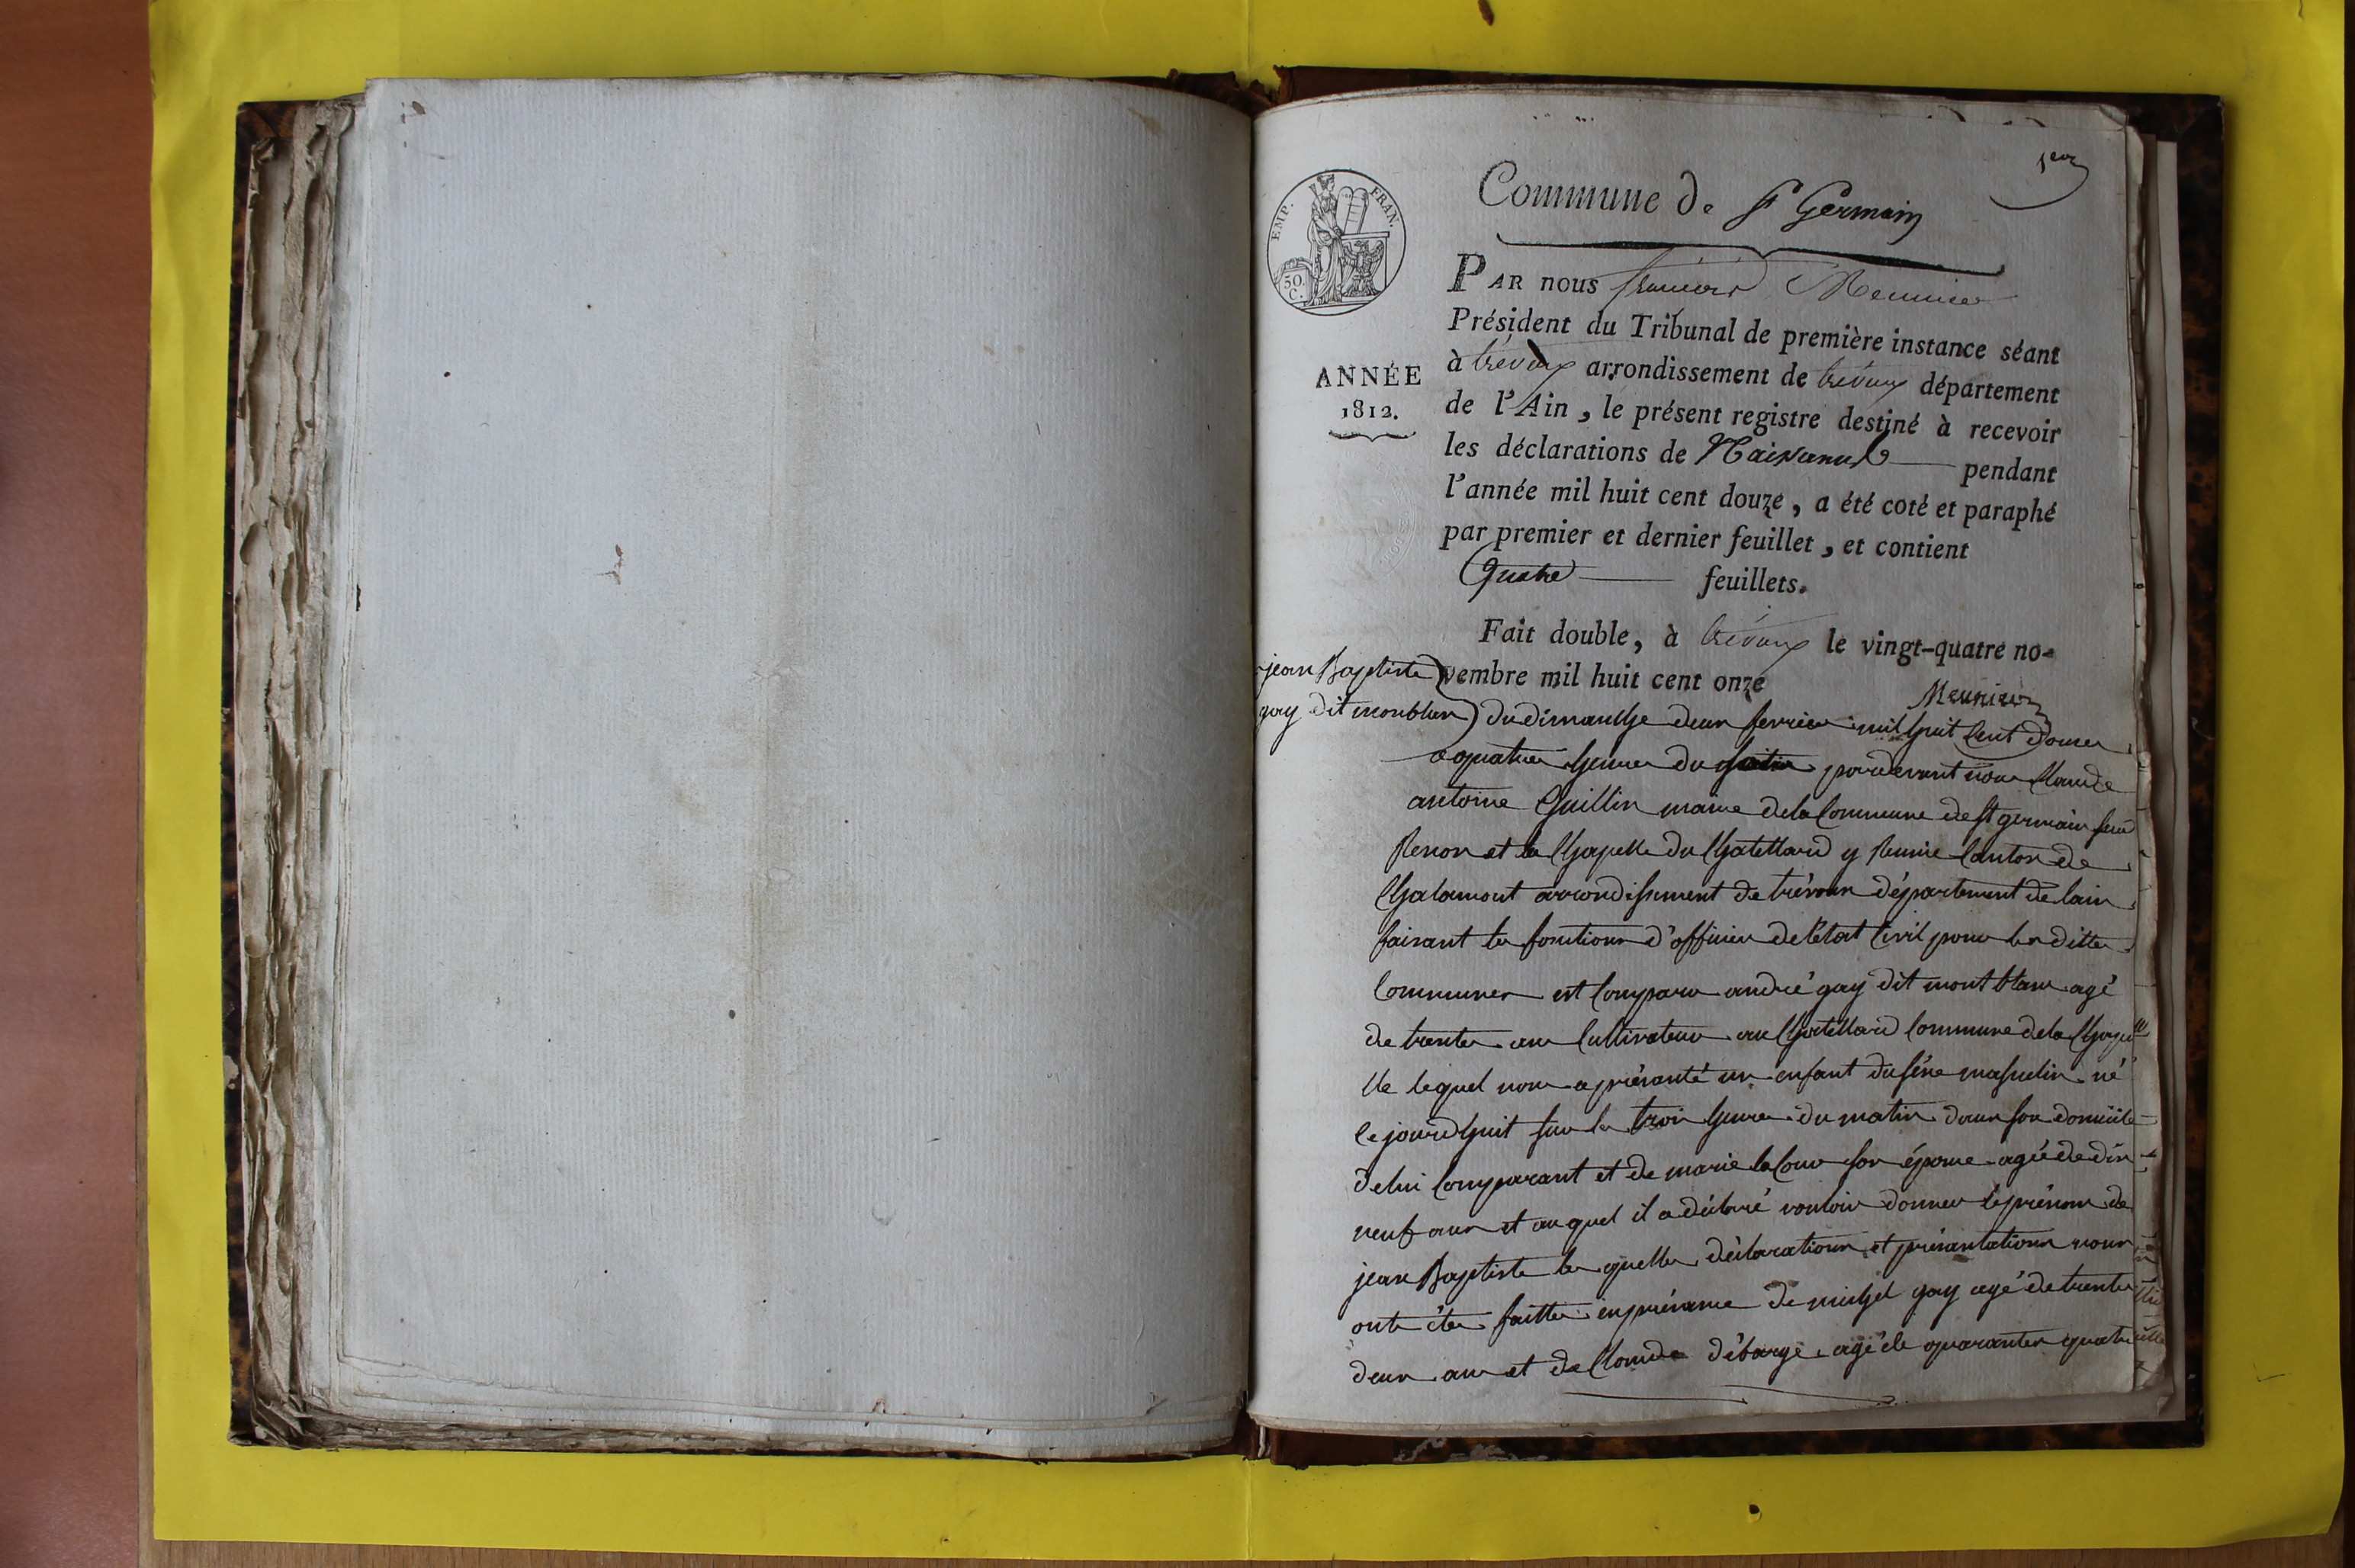 1er
Commune de St Germain
EMP. FRAN.
50. C.
PAR nous François Meunier
Président du Tribunal de première instance séant
à trévoux arrondissement de trévoux département
ANNÉE
1812.
de l'Ain, le présent registre destiné à recevoir
les déclarations de Naissances pendant
l'année mil huit cent douze, a été coté et paraphé
par premier et dernier feuillet, et contient
Quatre feuillets.
Fait double, à trévoux le vingt-quatre no-
vembre mil huit cent onze
Meunier
jean Baptiste
gay dit monblan
du dimanche deux fevrier mil huit cent douze
a quatre heures du matin pardevant nous Claude
antoine Guillin maire de la Commune de st germain sur
Renon et la Chapelle du Chatellard y Reunie Canton de
Chalamont arrondissement de trévoux département de lain
faisant les fonctions d'officier de l'état Civil pour les dittes
Communes est Comparu andré gay dit mont blanc agé
de trente ans Cultivateur au Chatellard Commune de la Chape
lle lequel nous a présanté un enfant du séxe masculin né
le jourdhuit sur les trois heures du matin dans son domicile
de lui Comparant et de marie la Cour son épouse agée de dix
neuf ans et au quel il a déclaré vouloir donner le prénom de
jean Baptiste les quelles déclarations et présantations nous
ont étés faittes en présance de michel gay agé de trente
deux ans et de Claude débarge agé de quarantes quatre